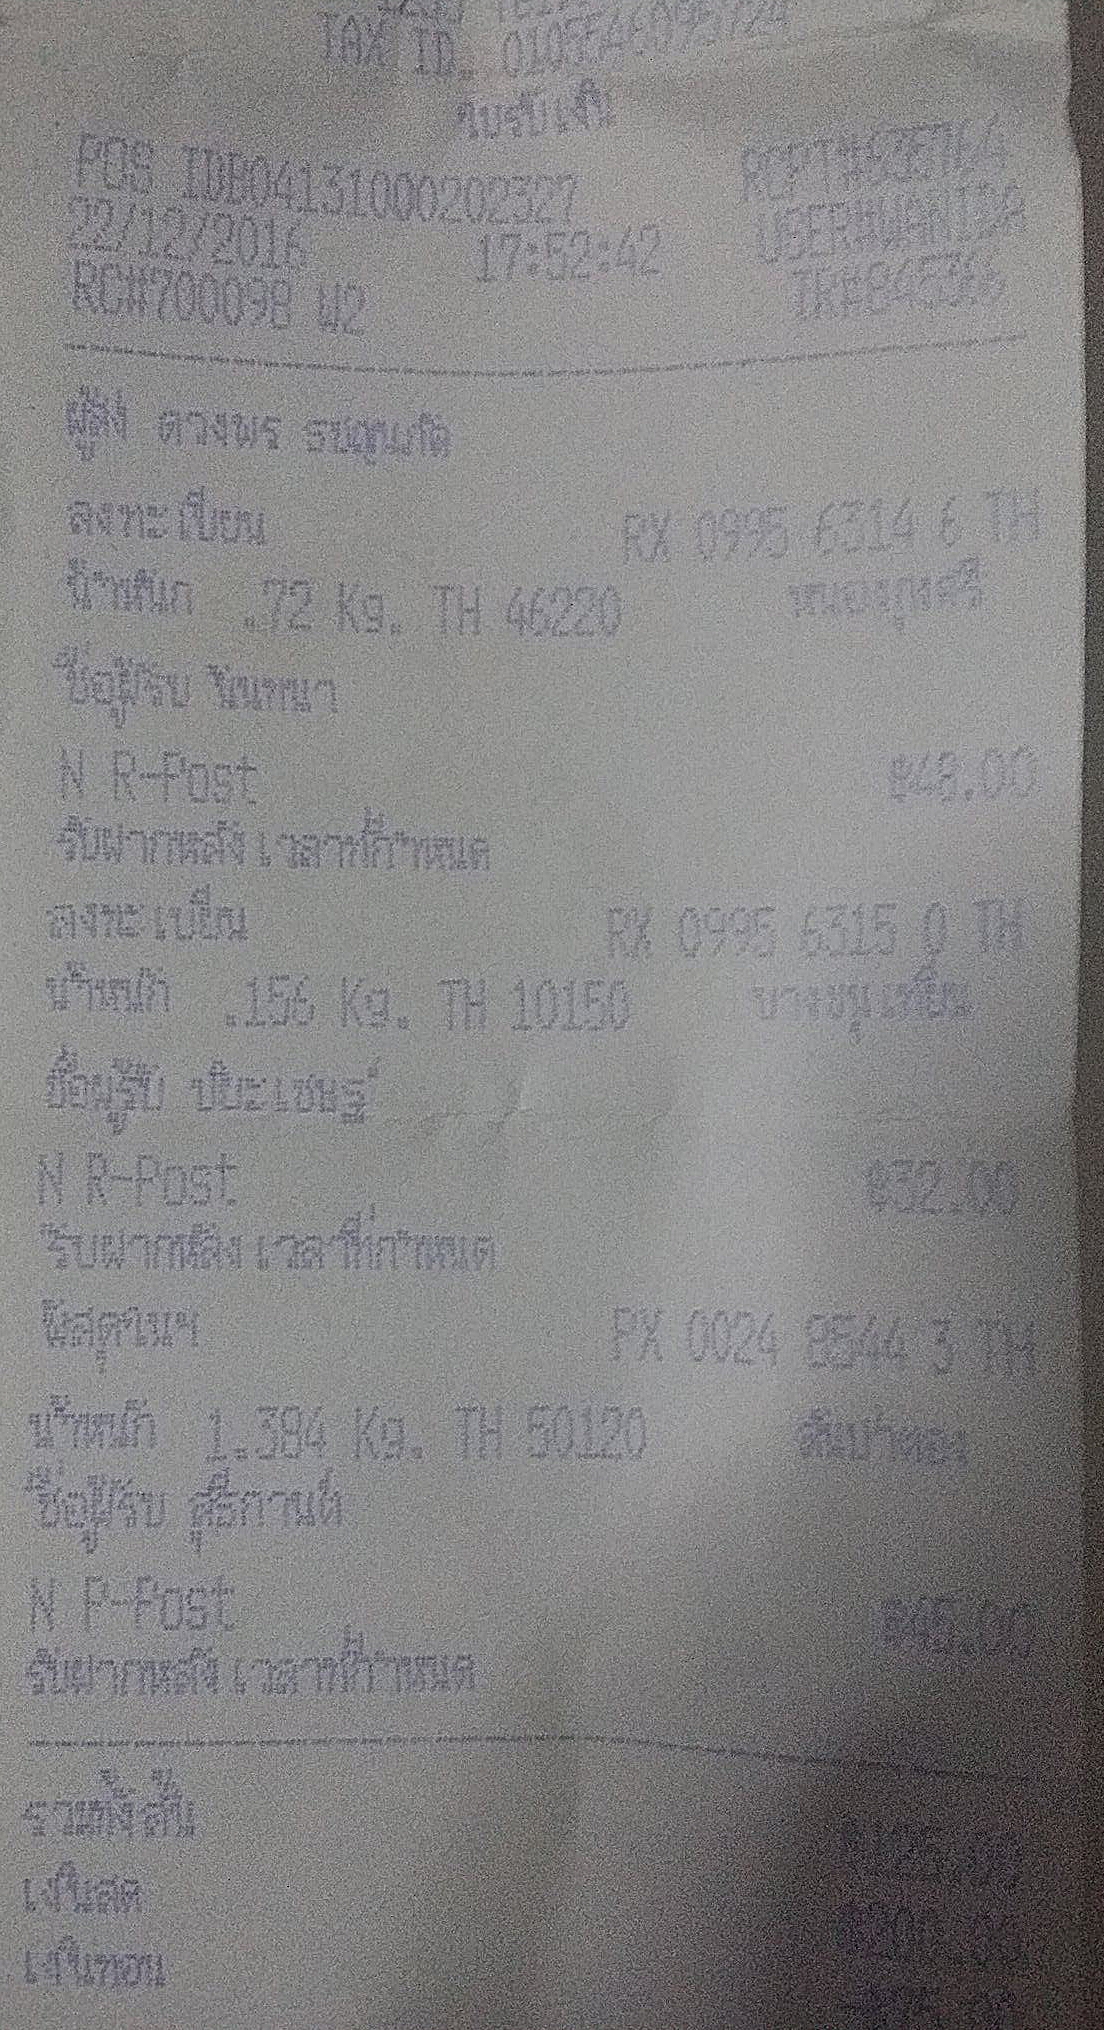 TAX ID. 0105546095724
ใบรับเงิน
POS IDB04131000202327 RCPT#
22/12/2016 17:52:42 USER#WANIDA
RC#700098 W2 TR#845366
ผู้ส่ง ดวงพร
ลงทะเบียน RX 0995 6314 6 TH
น้ำหนัก .72 Kg. TH 46220 หนองกุงศรี
ชื่อผู้รับ วันทนา
N R-Post ฿48.00
รับฝากหลังเวลาที่กำหนด
ลงทะเบียน RX 0995 6315 0 TH
น้ำหนัก .156 Kg. TH 10150 บางขุนเทียน
ชื่อผู้รับ ปิยะเชษฐ์
N R-Post ฿32.00
รับฝากหลังเวลาที่กำหนด
พัสดุในฯ PX 0024 8544 3 TH
น้ำหนัก 1.384 Kg. TH 50120 สันป่าตอง
ชื่อผู้รับ สุธีกานต์
N P-Post ฿45.00
รับฝากหลังเวลาที่กำหนด
รวมทั้งสิ้น
เงินสด
เงินทอน